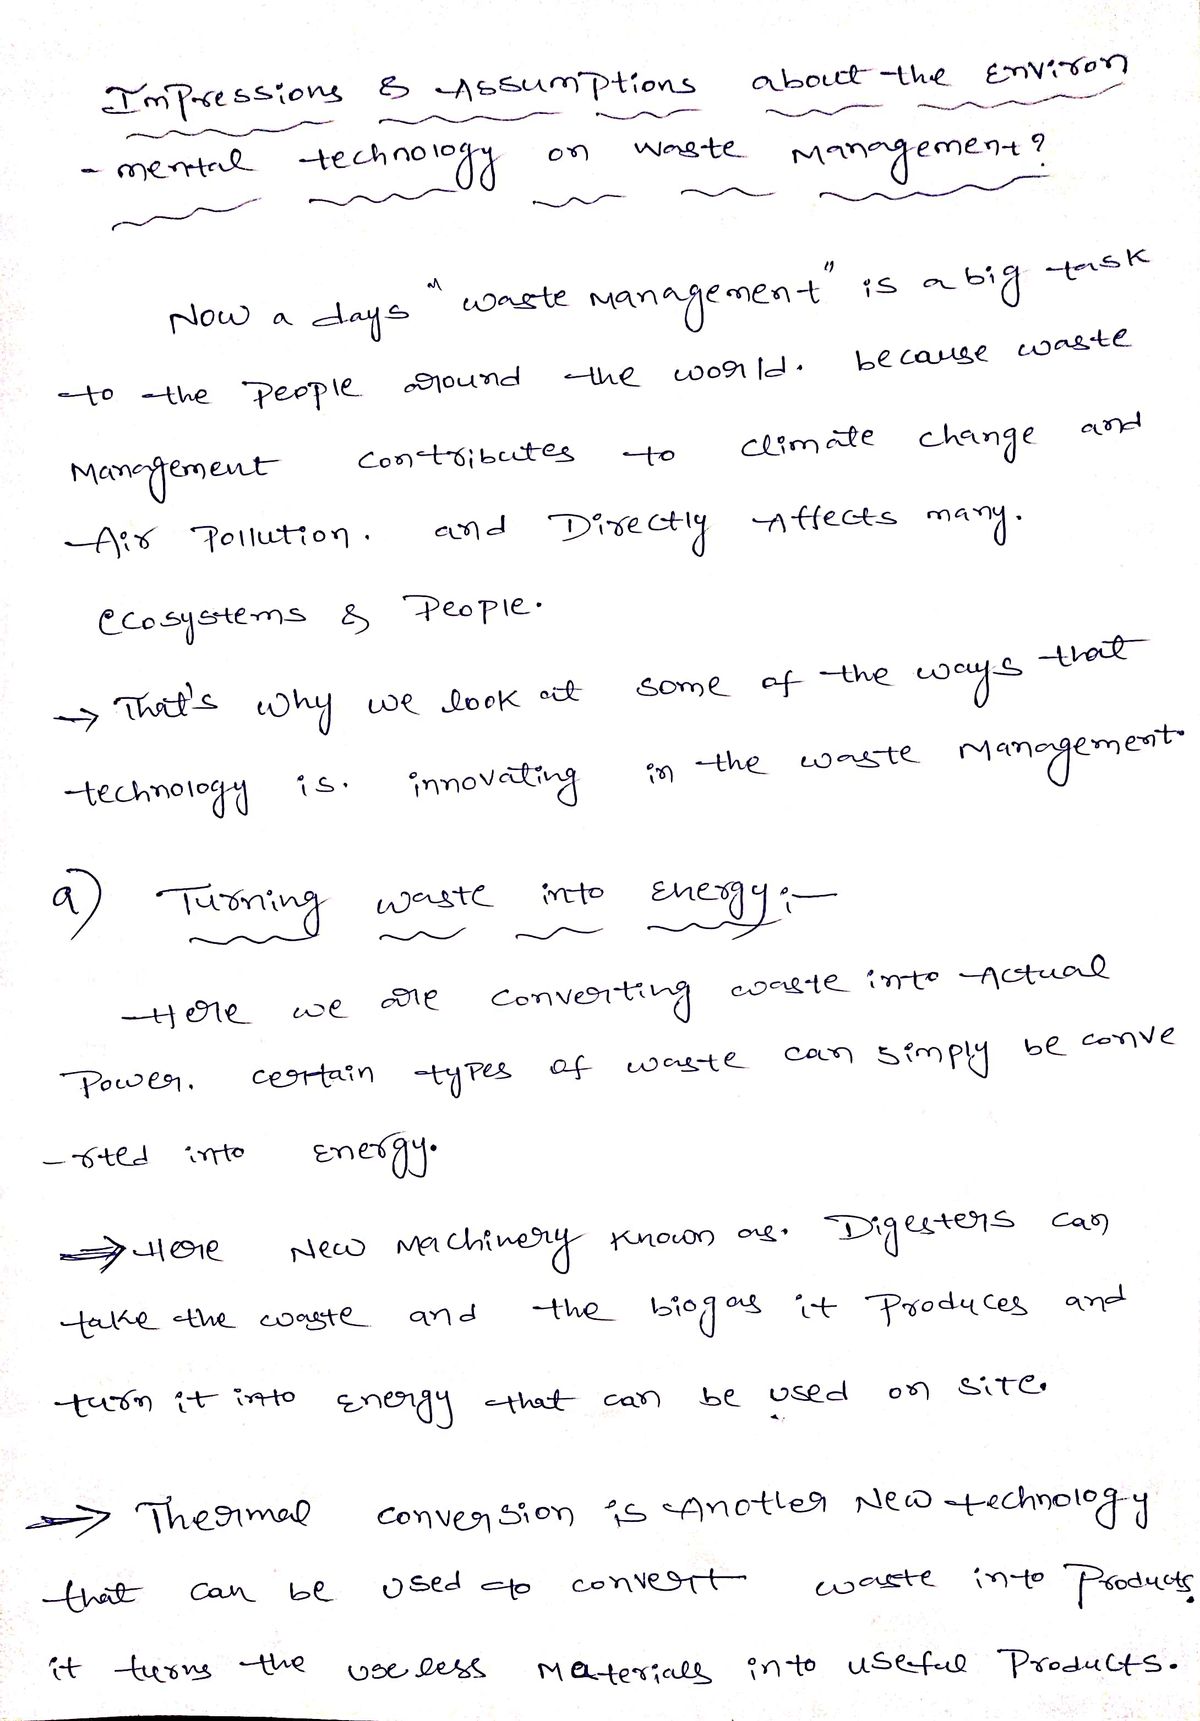 Impressions & Assumptions about the Environ
- mental technology on waste Management?
Now a days "waste Management" is a big task
to the People around the world. because waste
Management contributes to climate change and
Air Pollution. and Directly Affects many.
ecosystems & People.
→ That's why we look at some of the ways that
technology is. innovating in the waste Management.
a) Turning waste into Energy:-
Here we are converting waste into Actual
Power. certain types of waste can simply be conve
-rted into Energy.
⇒ Here New Machinery Known as. Digesters can
take the waste and the biogas it Produces and
turn it into Energy that can be used on site.
→ Thermal conversion is Another New technology
that can be used to convert waste into Products.
it turns the useless Materials into useful Products.